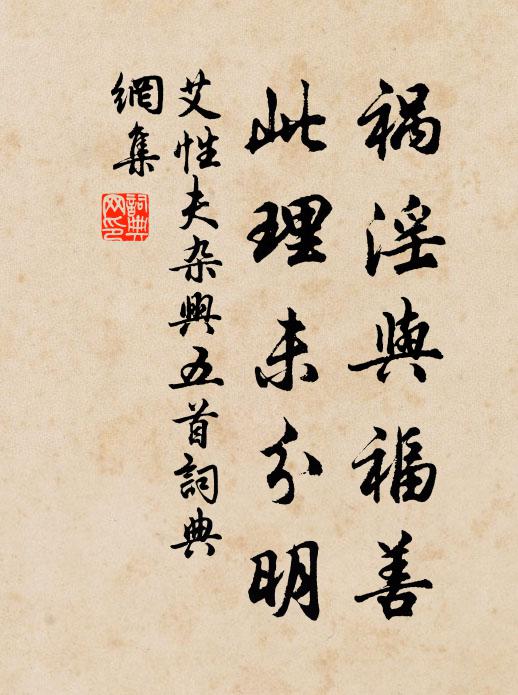 禍淫與福善
此理未分明
艾性夫杂興五首詞典
網集
詞典
网印